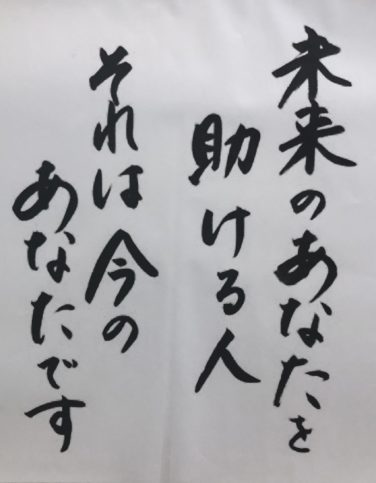 未来のあなたを
助ける人
それは今の
あなたです